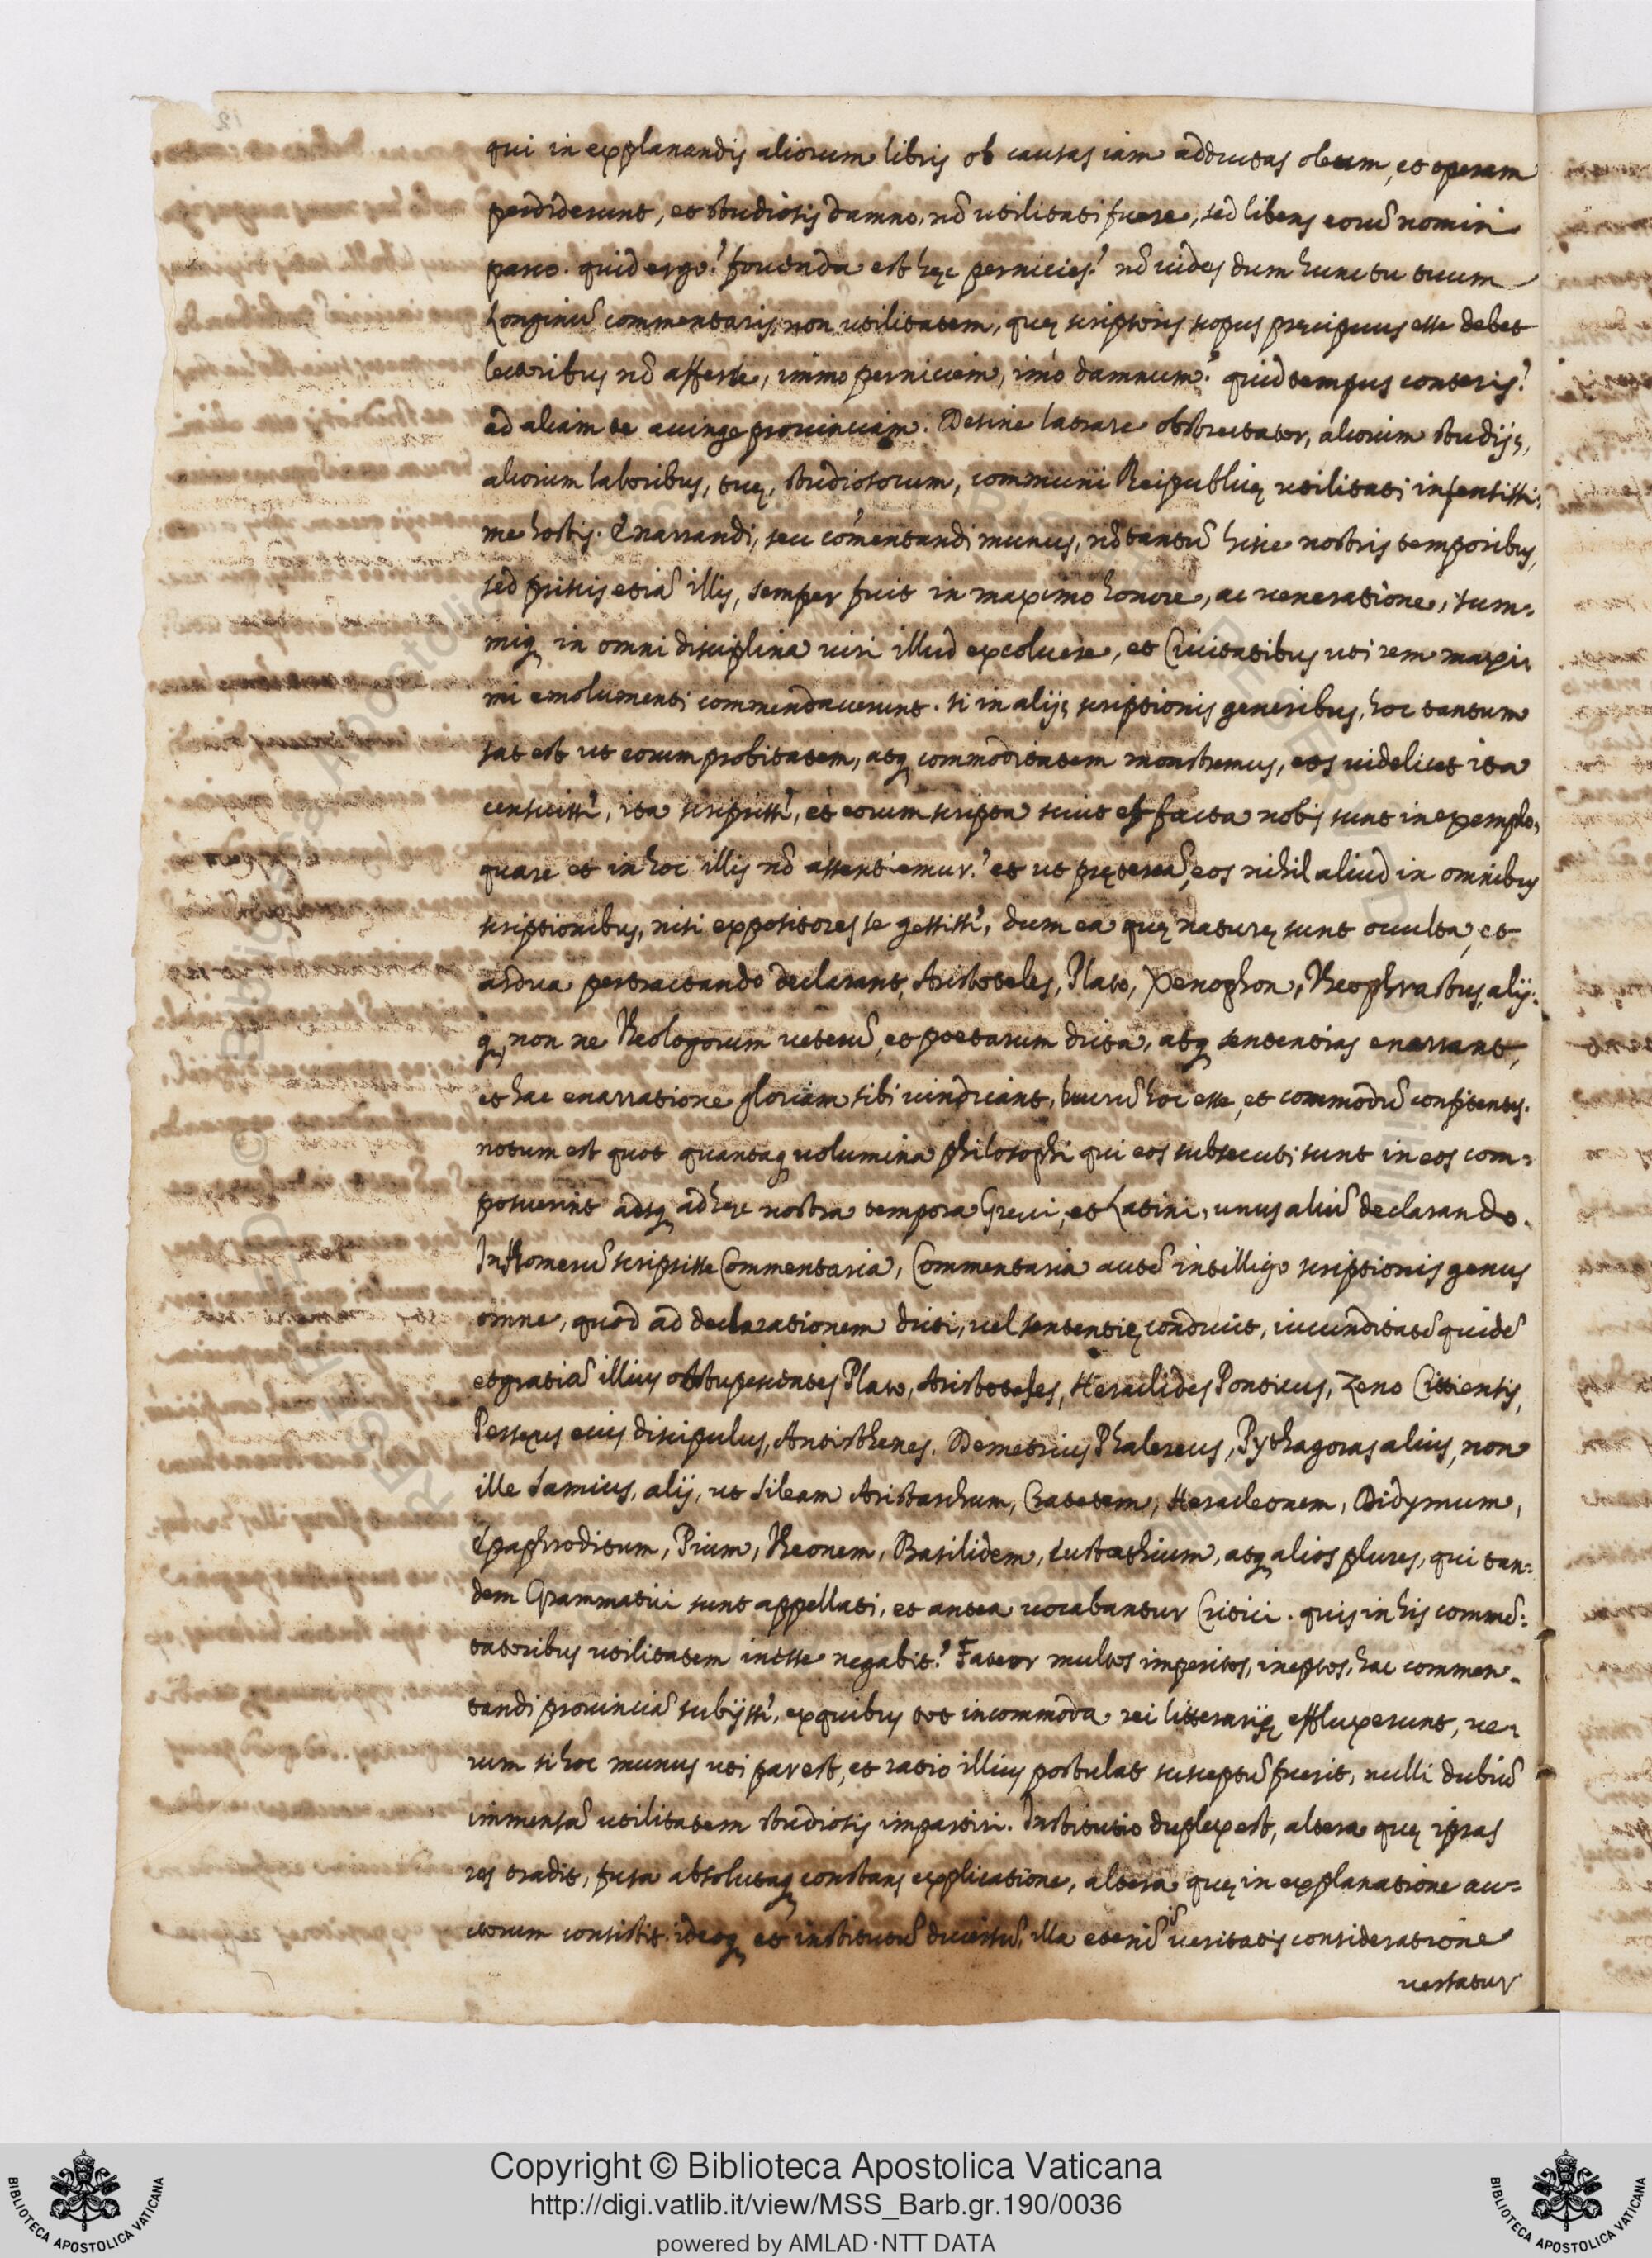 qui in explanandis aliorum libris ob causas iam adductas oleum, et operam
perdiderunt, et studiosis damno, nõ utilitati fuere, sed libens eorũ nomini
parco. quid ergo? fouenda est hęc pernicies? nõ uides dum hunc tu tuum
Longinũ commentaris, non utilitatem, quę scriptoris scopus pręcipuus esse debet
lectoribus nõ afferre, immo perniciem, imò damnum? quid tempus conteris?
ad aliam te accinge prouinciam. Desine latrare obtrectator, aliorum studijs,
aliorum laboribus, tuę, studiosorum, communi Reipublicę utilitati infensissi:
me hostis. Enarrandi, seu cõmentandi munus, nõ tantũ hisce nostris temporibus,
sed priscis etiã illis, semper fuit in maximo honore, ac ueneratione, sum=
miq; in omni disciplina uiri illud excoluere, et Ciuitatibus uti rem maxi=
mi emolumenti commendauerunt. si in alijs scriptionis generibus, hoc tantum
sat est ut eorum probitatem, atq; commoditatem monstremus, eos uidelicet ita
censuisse, ita scripsisse, et eorum scripta sicut et facta nobis sunt in exemplo,
quare et in hoc illis nõ assentiemur? et ut prętereã, eos nihil aliud in omnibus
scriptionibus, nisi expositores se gessisse, dum ea quę naturę sunt occulta, et
ardua pertractando declarant, Aristoteles, Plato, Xenophon, Theophrastus, alij=
q; non ne Theologorum ueterũ, et poetarum dicta, atq; sententias enarrant,
et hac enarratione gloriam sibi uindicant, lucrũ hoc esse, et commodũ confitentes.
notum est quot quantaq; uolumina philosophi qui eos subsecuti sunt in eos com=
posuerint adusq; ad hęc nostra tempora Gręci, et Latini, unus aliũ declarando.
In Homerũ scripsisse Commentaria, Commentaria autẽ intelligo scriptionis genus
omne, quod ad declarationem dicti, uel sententię conducit, iucunditatẽ quidẽ
et gratiã illius obstupescentes Plato, Aristoteles, Heraclides Ponticus, Zeno Cittiensis,
Persęus eius discipulus, Antisthenes, Demetrius Phalereus, Pythagoras alius, non
ille Samius, alij, ut sileam Aristarchum, Cratetem, Heracleonem, Didymum,
Epaphroditum, Pium, Theonem, Basilidem, Eustathium, atq; alios plures, qui tan=
dem Grammatici sunt appellati, et antea uocabantur Critici. quis in his commẽ=
tatoribus utilitatem inesse negabit? Fateor multos imperitos, ineptos, hac commen=
tandi prouinciã subijsse, ex quibus tot incommoda rei litterarię effluxerunt, ue=
rum si hoc munus uti par est, et ratio illius postulat susceptũ fuerit, nulli dubiũ
immensã utilitatem studiosis impartiri. Institutio duplex est, altera quę ipsas
res tradit, fusa absolutaq; constans explicatione, altera quę in explanatione au=
ctorum consistit. ideoq; et institutũ diuersũ, illa etenĩ in ueritatis consideratione
uersatur